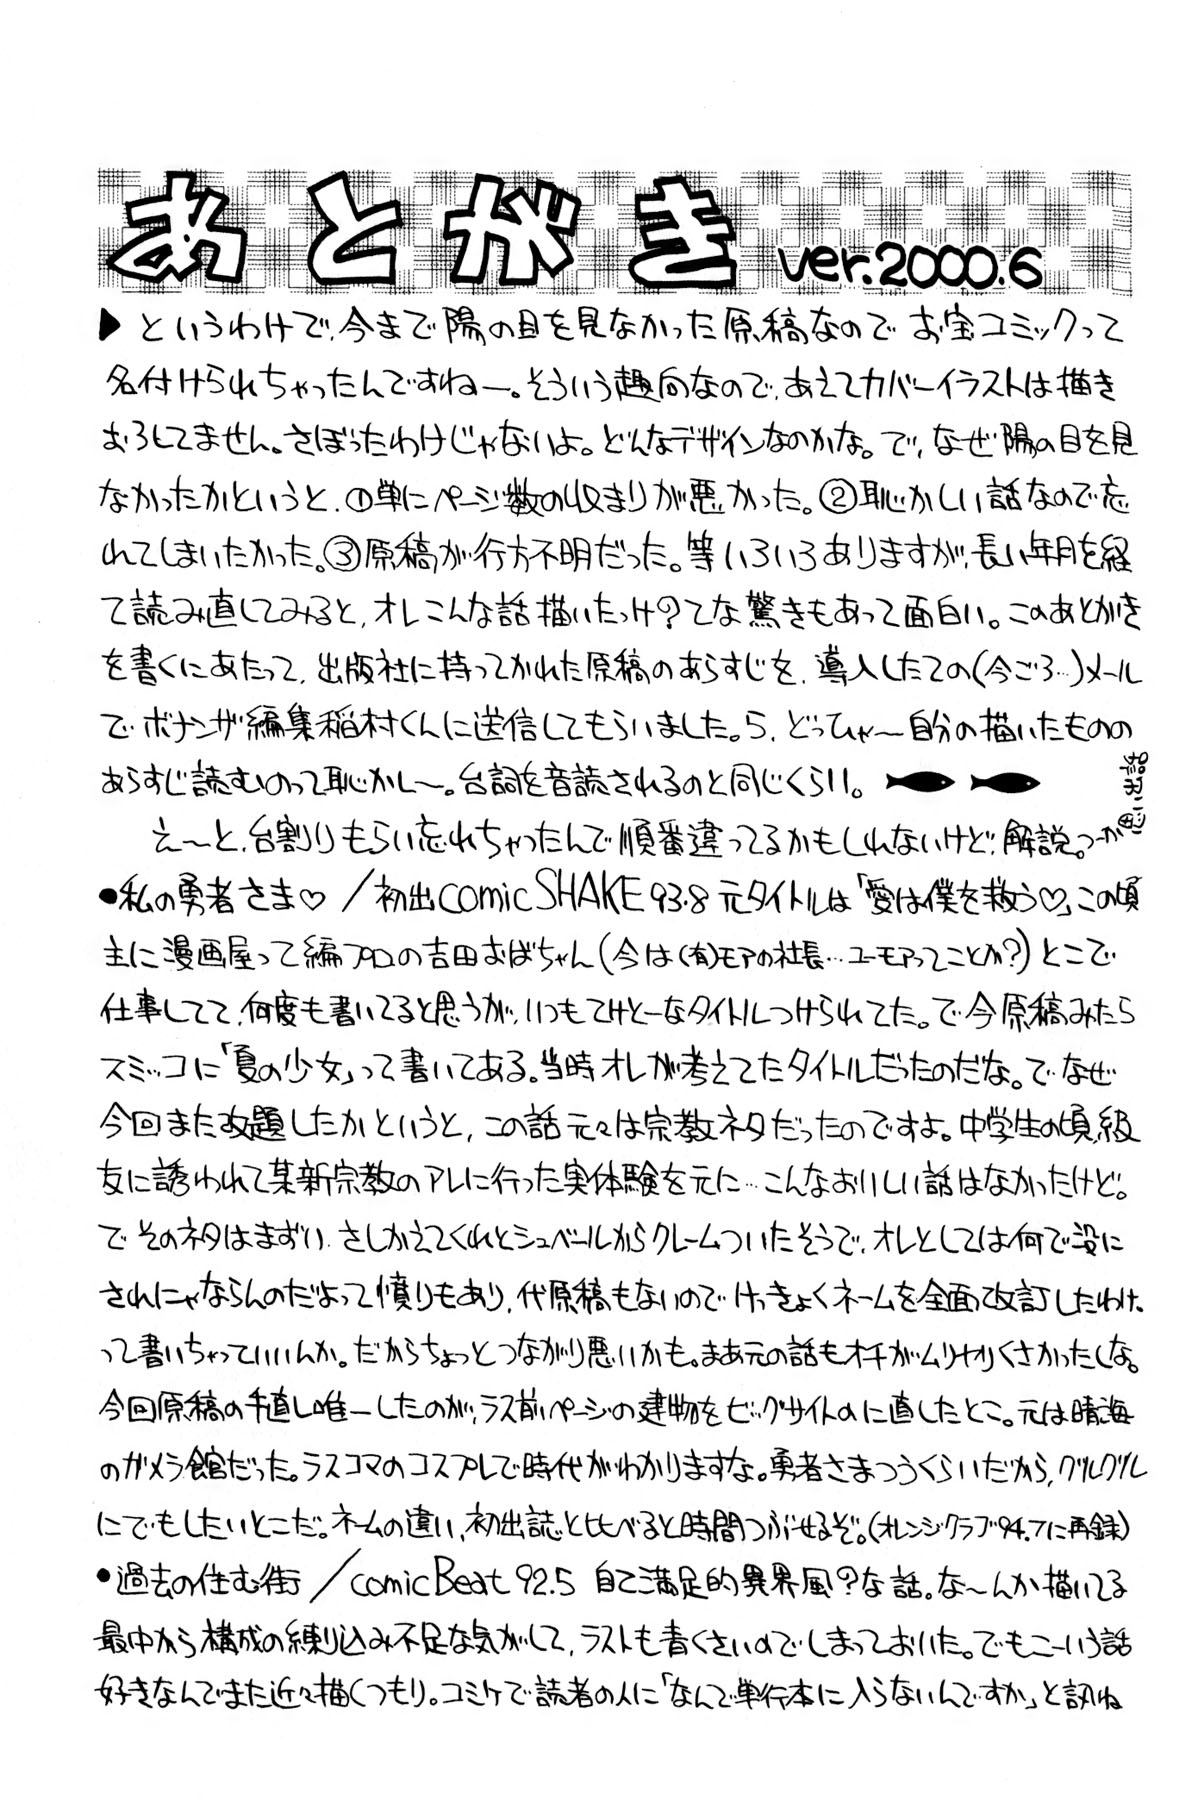 あとがき ver.2000.6
▶というわけで、今まで陽の目を見なかった原稿なので お宝コミックって
名付けられちゃったんですねー。そういう趣向なので、あえてカバーイラストは描き
おろしてません。さぼったわけじゃないよ。どんなデザインなのかな。で、なぜ陽の目を見
なかったかというと、①単にページ数の収まりが悪かった。②恥かしい話なので忘
れてしまいたかった。③原稿が行方不明だった。等いろいろありますが、長い年月を経
て読み直してみると、オレこんな話描いたっけ?てな驚きもあって面白い。このあとがき
を書くにあたって、出版社に持ってかれた原稿のあらすじを、導入したての(今ごろ…)メール
で ボナンザ編集稲村くんに送信してもらいました。ら、どっひゃ〜自分の描いたものの
あらすじ読むのって恥かし〜。台詞を音読されるのと同じくらい。
え〜と、台割りもらい忘れちゃったんで順番違ってるかもしれないけど、解説。つーか思い出話
●私の勇者さま♡／初出comic SHAKE 93.8 元タイトルは「愛は僕を救う♡」、この頃
主に漫画屋って編プロの吉田おばちゃん(今は(有)モアの社長…ユーモアってことか?)とこで
仕事してて、何度も書いてると思うが、いつもてけとーなタイトルつけられてた。で今原稿みたら
スミッコに「夏の少女」って書いてある。当時オレが考えてたタイトルだったのだな。で なぜ
今回また改題したかというと、この話元々は宗教ネタだったのですよ。中学生の頃、級
友に誘われて某新宗教のアレに行った実体験を元に…こんなおいしい話はなかったけど。
で そのネタはまずい、さしかえてくれとシュベールからクレームついたそうで、オレとしては何で没に
されにゃならんのだよって憤りもあり、代原稿もないので けっきょくネームを全面で改訂したわけ。
って書いちゃっていいんか。だからちょっとつながり悪いかも。まあ元の話もオチがムリヤリくさかったしな。
今回原稿の手直し唯一したのが、ラス前ページの建物をビッグサイトのに直したとこ。元は晴海
のガメラ館だった。ラスコマのコスプレで時代がわかりますな。勇者さまつうくらいだから、グルグル
にでもしたいとこだ。ネームの違い、初出誌と比べると時間つぶせるぞ。(オレンジクラブ94.7に再録)
●過去の住む街／comic Beat 92.5 自己満足的異界風?な話。な〜んか描いてる
最中から構成の練り込み不足な気がして、ラストも青くさいのでしまっておいた。でもこーいう話
好きなんでまた近々描くつもり。コミケで読者の人に「なんで単行本に入らないんですか」と訊ね